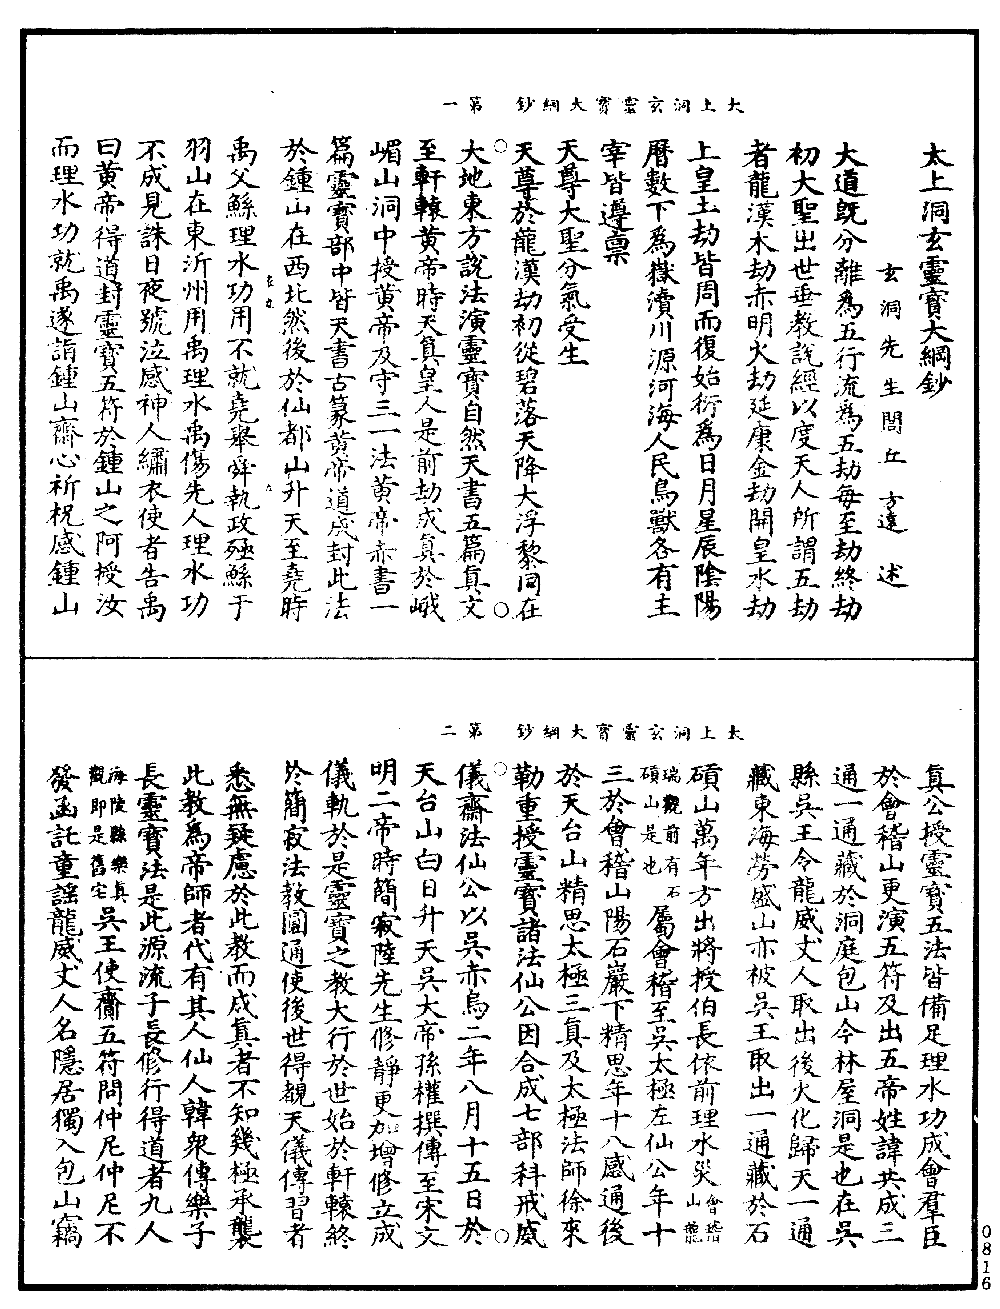 太上洞玄靈寶大綱鈔　第一
太上洞玄靈寶大綱鈔
玄洞先生閭丘方遠　述
大道既分離為五行流為五劫每至劫終劫
初大聖出世垂教說經以度天人所謂五劫
者龍漢木劫赤明火劫延康金劫開皇水劫
上皇土劫皆周而復始衍為日月星辰陰陽
曆數下為嶽瀆川源河海人民鳥獸各有主
宰皆遵稟
天尊大聖分氣受生
天尊於龍漢劫初從碧落天降大浮黎同在
大地東方說法演靈寶自然天書五篇真文
至軒轅黃帝時天真皇人是前劫成真於峨
嵋山洞中授黃帝及守三一法黃帝赤書一
篇靈寶部中皆天書古篆黃帝道成封此法
於鍾山在西北然後於仙都山升天至堯時
禹父鯀理水功用不就堯舉舜執政殛鯀于
羽山在東沂州用禹理水禹傷先人理水功
不成見誅日夜號泣感神人繡衣使者告禹
曰黃帝得道封靈寶五符於鍾山之阿授汝
而理水功就禹遂詣鍾山齋心祈祝感鍾山
太上洞玄靈寶大綱鈔　第二
真公授靈寶五法皆備足理水功成會羣臣
於會稽山更演五符及出五帝姓諱共成三
通一通藏於洞庭包山今林屋洞是也在吳
縣吳王令龍威丈人取出後火化歸天一通
藏東海勞盛山亦被吳王取出一通藏於石
磧山萬年方出將授伯長依前理水災會稽山龍
瑞觀前有石磧山是也屬會稽至吳太極左仙公年十
三於會稽山陽石巖下精思年十八感通後
於天台山精思太極三真及太極法師徐來
勒重授靈寶諸法仙公因合成七部科戒威
儀齋法仙公以吳赤烏二年八月十五日於
天台山白日升天吳大帝孫權撰傳至宋文
明二帝時簡寂陸先生修靜更加增修立成
儀軌於是靈寶之教大行於世始於軒轅終
於簡寂法教圓通使後世得觀天儀傳習者
悉無疑慮於此教而成真者不知幾極承襲
此教為帝師者代有其人仙人韓衆傳樂子
長靈寶法是此源流子長修行得道者九人
海陵縣樂真觀即是舊宅吳王使齎五符問仲尼仲尼不
發函託童謠龍威丈人名隱居獨入包山竊
0816